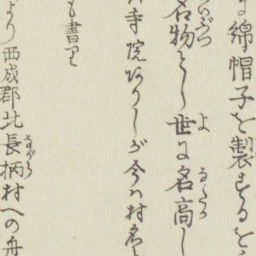 に綿帽子を製するを
名物とし世に名高し
寺院ありしが今ハ村名
も書り
より西成郡北長柄村への舟